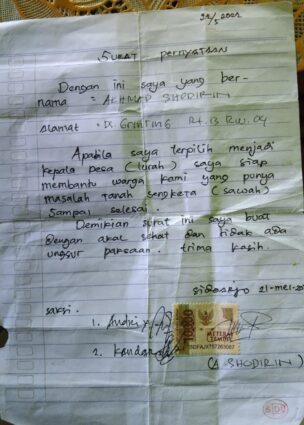 21/5 2021
SURAT PERNYATAAN
Dengan ini saya yang ber-
nama = AKHMAD SHODIRIN
Alamat = Ds GRINTING Rt. 13 RW. 04
Apabila saya terpilih menjadi
kepala Desa (lurah) saya siap
membantu warga kami yang punya
masalah tanah sengketa (sawah)
Sampai selesai.
Demikian surat ini saya buat
Dengan akal sehat dan tidak ada
unsur paksaan. trima kasih.
Sidoarjo 21-mei-20
saksi.
1. Andri
10000
METERAI
TEMPEL
2.
(A SHODIRIN)
SIDU